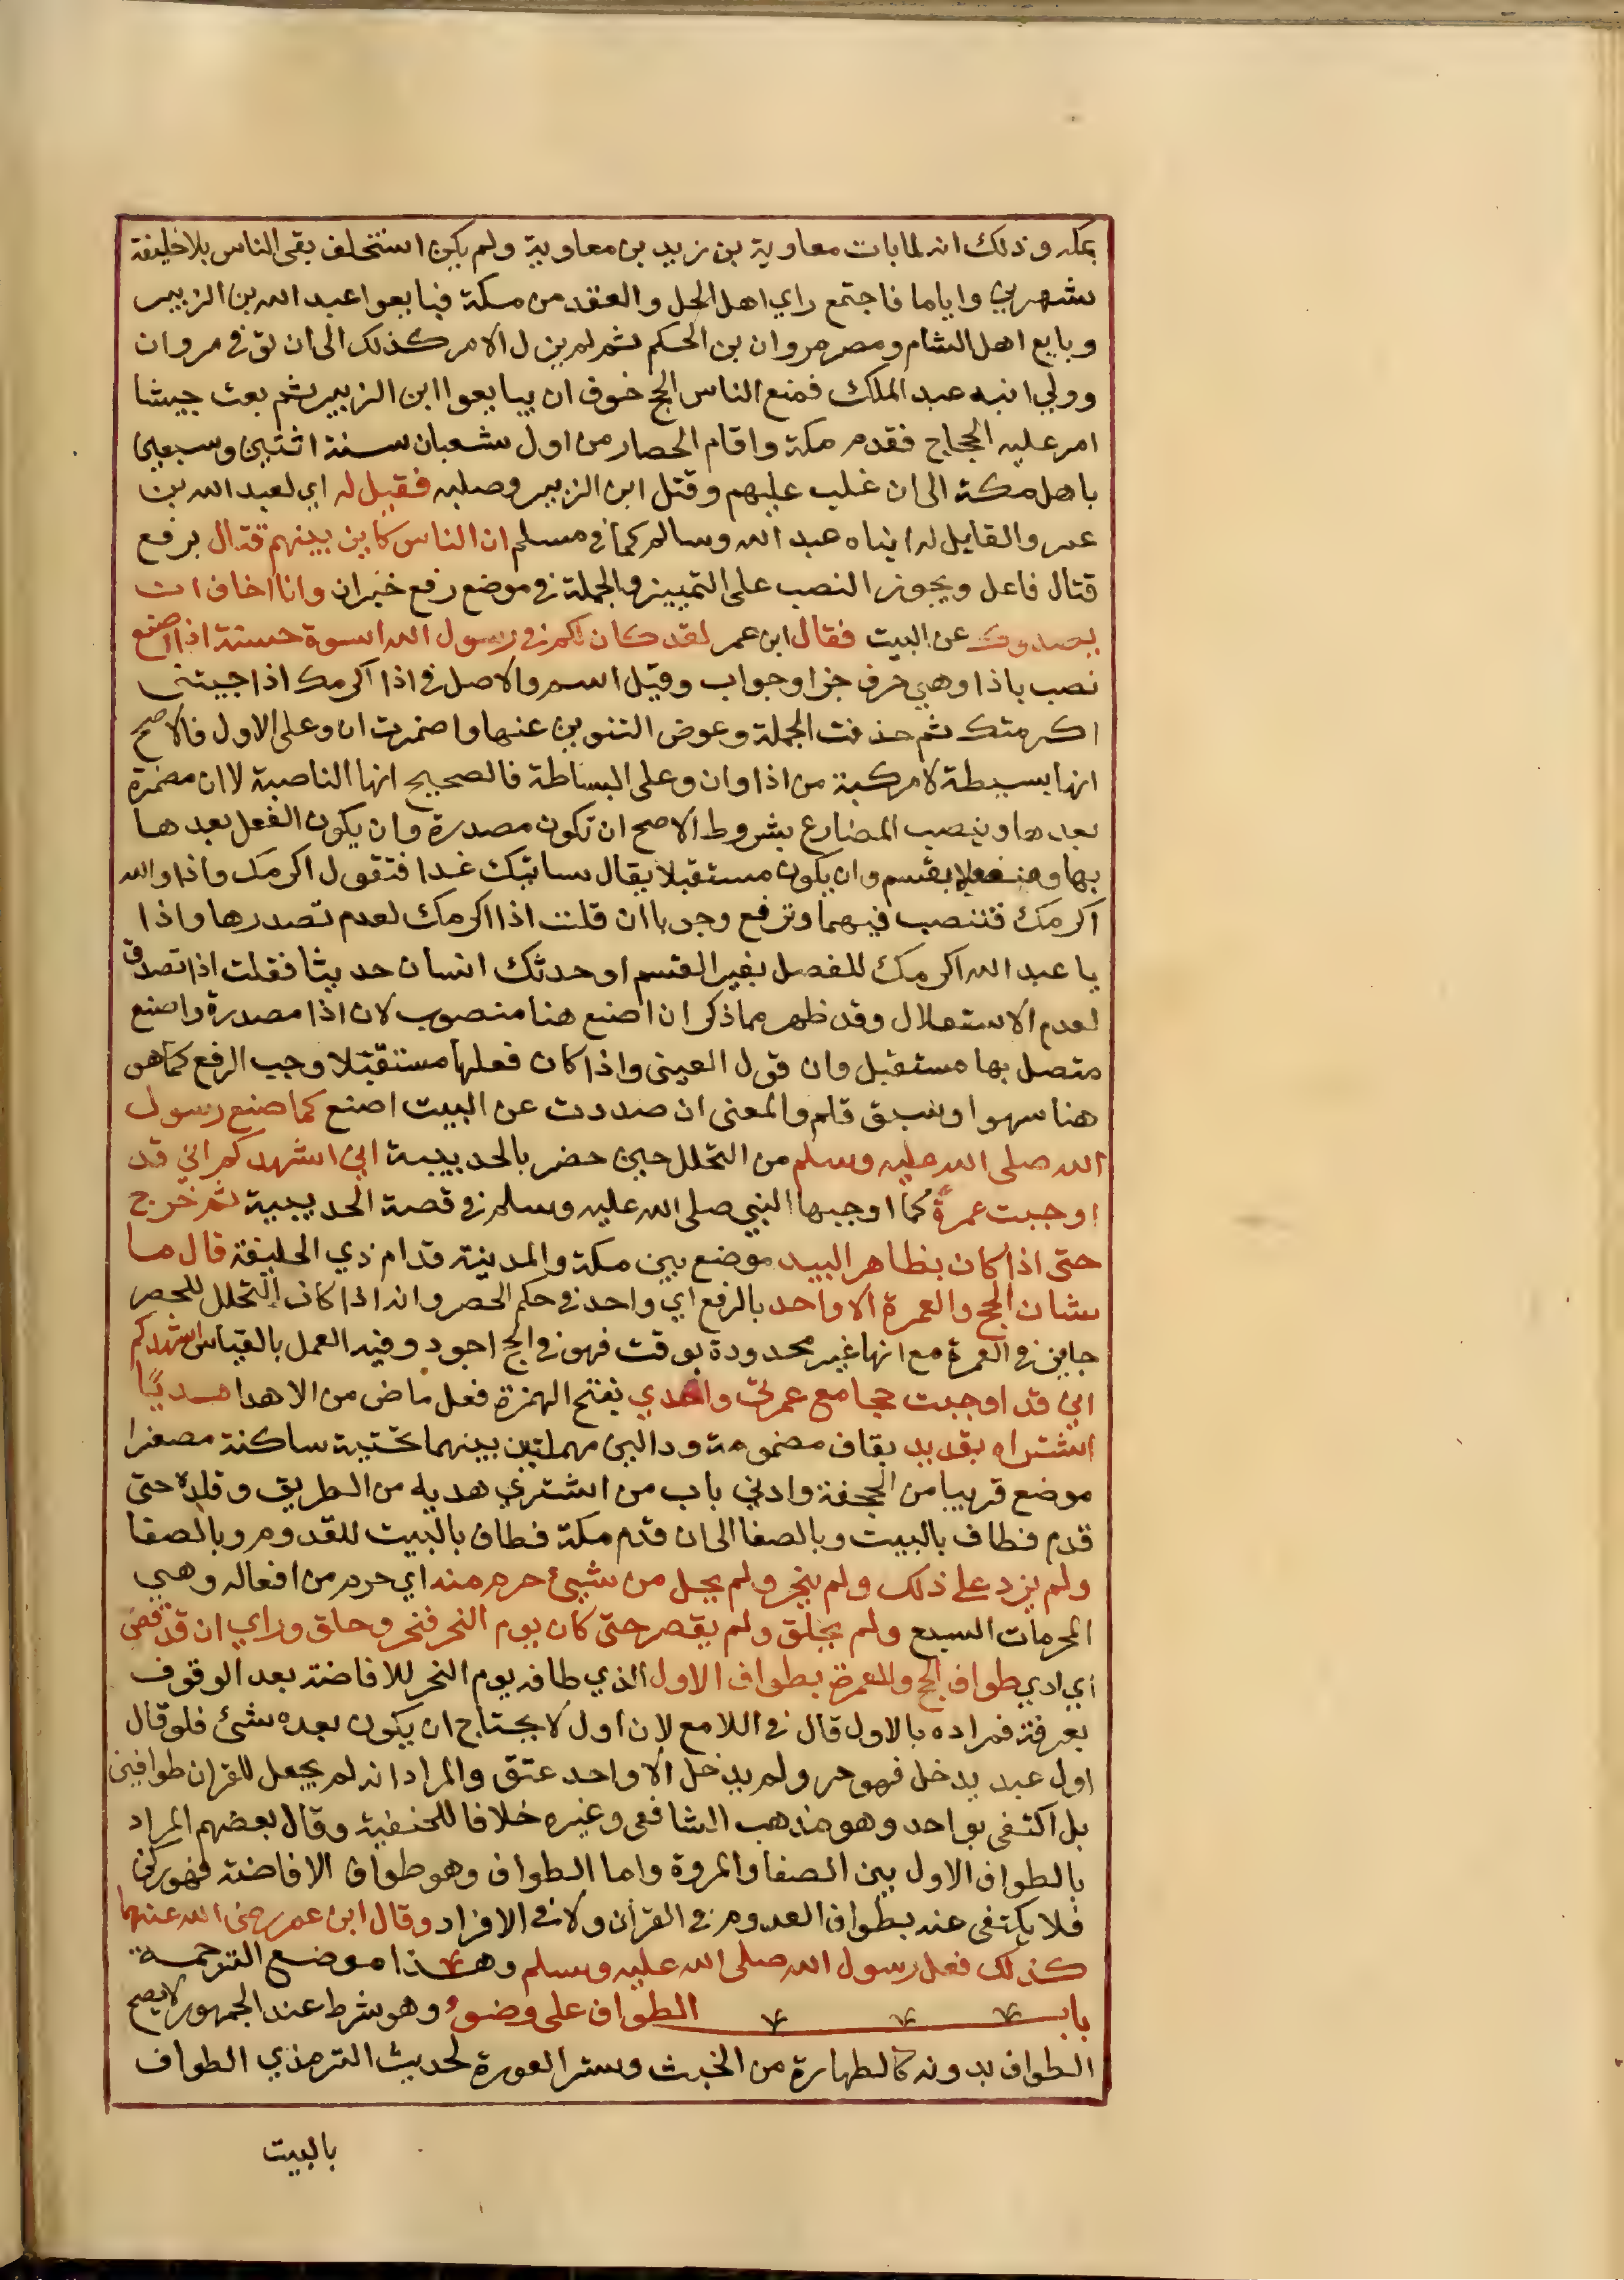 بمكه وذلك انه لمابات معاوية بن يزيد بن معاوية ولم يكن استخلف بقى الناس بلا خليفة
شهرين واياما فاجتمع راي اهل الحل والعقد من مكة فبايعوا عبد الله بن الزبير
وبايع اهل الشام ومصر مروان بن الحكم ثم لم يزل الامر كذلك الى ان توفي مروان
وولي ابنه عبد الملك فمنع الناس الحج خوف ان يبايعوا ابن الزبير ثم بعث جيشا
امر عليه الحجاج فقدم مكة واقام الحصار من اول شعبان سنة اثنتين وسبعين
باهل مكة الى ان غلب عليهم وقتل ابن الزبير وصلبه فقيل له اي لعبد الله بن
عمر والقايل له ابناه عبد الله وسالم كما في مسلم ان الناس كاين بينهم قتال برفع
قتال فاعل ويجوز النصب على التمييز والجملة في موضع رفع خبر ان وانا اخاف ان
يصدوك عن البيت فقال ابن عمر لقد كان لكم في رسول الله اسوة حسنة اذا اصنع
نصب باذا وهي حرف جزا وجواب وقيل اسم والاصل في اذا اكرمك اذا جيتنى
اكرمتك ثم حذفت الجملة وعوض التنوين عنها واضمرت ان وعلى الاول فالاصح
انها بسيطة لا مركبة من اذا وان وعلى البساطة فالصحيح انها الناصبة لا ان مضمرة
بعدها وينصب المضارع بشروط الاصح ان تكون مصدرة وان يكون الفعل بعدها
بها ومنفصلا بقسم وان يكون مستقبلا يقال ساتيك غدا فتقول اكرمك واذا والله
اكرمك فتنصب فيهما وترفع وجوبا ان قلت اذا اكرمك لعدم تصدرها واذا
يا عبد الله اكرمك للفصل بغير القسم او حدثك انسان حديثا فقلت اذا تصدق
لعدم الاستقلال وقد ظهر مما ذكر ان اصنع هنا منصوب لان اذا مصدرة واصنع
متصل بها مستقبل وان قول العيني واذا كان فعلها مستقبلا وجب الرفع كما هو
هنا سهوا وسبق قلم والمعنى ان صددت عن البيت اصنع كما صنع رسول
الله صلى الله عليه وسلم من التحلل حين حضر بالحديبية اني اشهدكم اني قد
اوجبت عمرة كما اوجبها النبي صلى الله عليه وسلم في قصة الحديبية ثم خرج
حتى اذا كان بظاهر البيد موضع بين مكة والمدينة قدام ذي الحليفة قال ما
شان الحج والعمرة الا واحد بالرفع اي واحد في حكم الحصر وانه اذا كان التحلل للحصر
جايز في العمرة مع انها غير محدودة بوقت فهو في الحج اجود وفيه العمل بالقياس اشهدكم
اني قد اوجبت حجا مع عمرتي واهدي بفتح الهمزة فعل ماض من الاهدا هديًا
اشتراه بقديد بقاف مضمومة ودالين مهملتين بينهما تحتية ساكنة مصغرا
موضع قريبا من الجحفة وادني باب من اشتري هديه من الطريق وقلده حتى
قدم فطاف بالبيت وبالصفا الى ان قدم مكة فطاف بالبيت للقدوم وبالصفا
ولم يزد على ذلك ولم ينحر ولم يحل من شيئ حرم منه اي حرم من افعاله وهي
المحرمات السبع ولم يحلق ولم يقصر حتى كان يوم النحر فنحر وحلق وراي ان قد قضى
اي ادي طواف الحج والعمرة بطواف الاول الذي طافه يوم النحر للافاضة بعد الوقوف
بعرفة فمراده بالاول قال في اللامع لان اول لا يحتاج ان يكون بعده شئ فلو قال
اول عبد يدخل فهو حر ولم يدخل الا واحد عتق والمراد انه لم يجعل للقران طوافين
بل اكتفى بواحد وهو مذهب الشافعي وغيره خلافا للحنفية وقال بعضهم المراد
بالطواف الاول بين الصفا والمروة واما الطواف وهو طواف الافاضة فهو ركن
فلا يكتفى عنه بطواف القدوم في القران ولا في الافراد وقال ابن عمر رضي الله عنهما
كذلك فعل رسول الله صلى الله عليه وسلم وهذا موضع الترجمة
باب الطواف على وضوء وهو شرط عند الجمهور لا يصح
الطواف بدونه كالطهارة من الخبث وستر العورة لحديث الترمذي الطواف
بالبيت